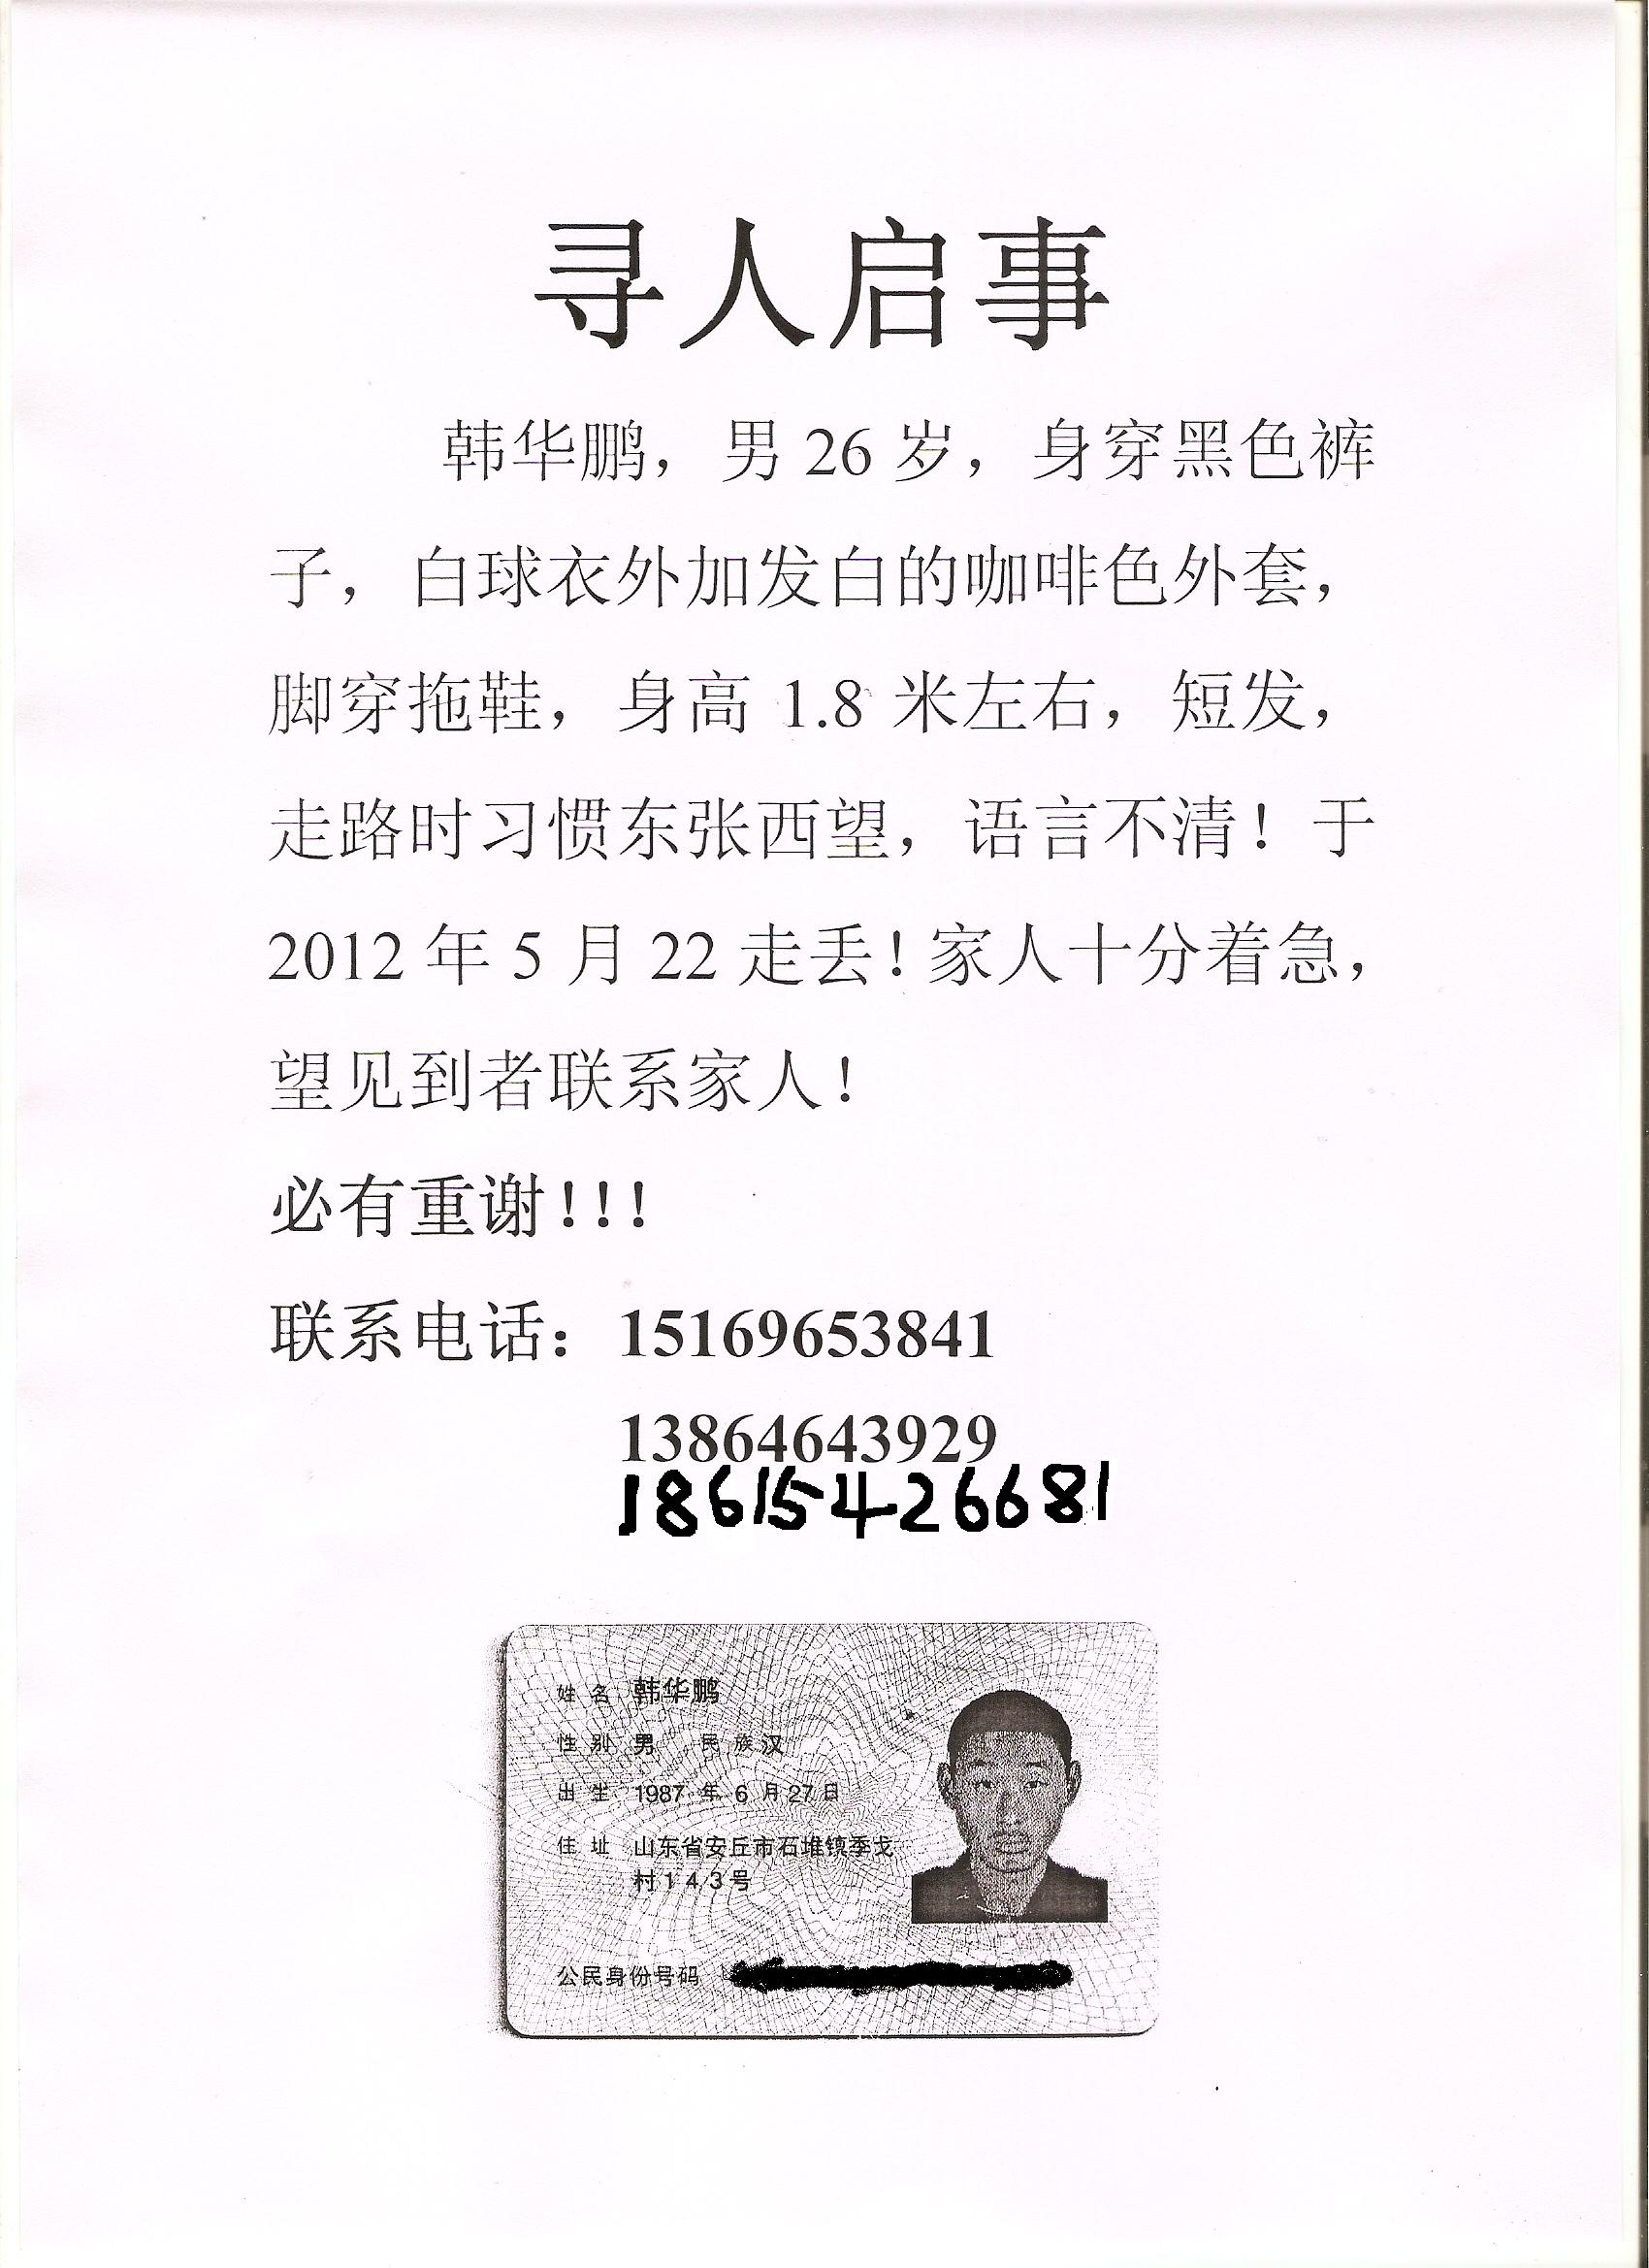 寻人启事
韩华鹏，男 26 岁，身穿黑色裤
子，白球衣外加发白的咖啡色外套，
脚穿拖鞋，身高 1.8 米左右，短发，
走路时习惯东张西望，语言不清！于
2012 年 5 月 22 走丢！家人十分着急，
望见到者联系家人！
必有重谢！！！
联系电话：15169653841
13864643929
18615426681
姓名 韩华鹏
性别 男 民族 汉
出生 1987 年 6 月 27 日
住址 山东省安丘市石堆镇季戈
村143号
公民身份号码